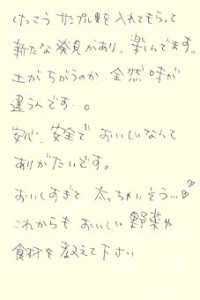 けっこう サンプル量を入れてもらって
新たな発見があり、楽しんでます。
土がちがうのか 全然 味が
違うんです。
安心、安全で おいしいなんて
ありがたいです。
おいしすぎて 太っちゃいそう…♡
これからも おいしい 野菜や
食材を 教えて下さい